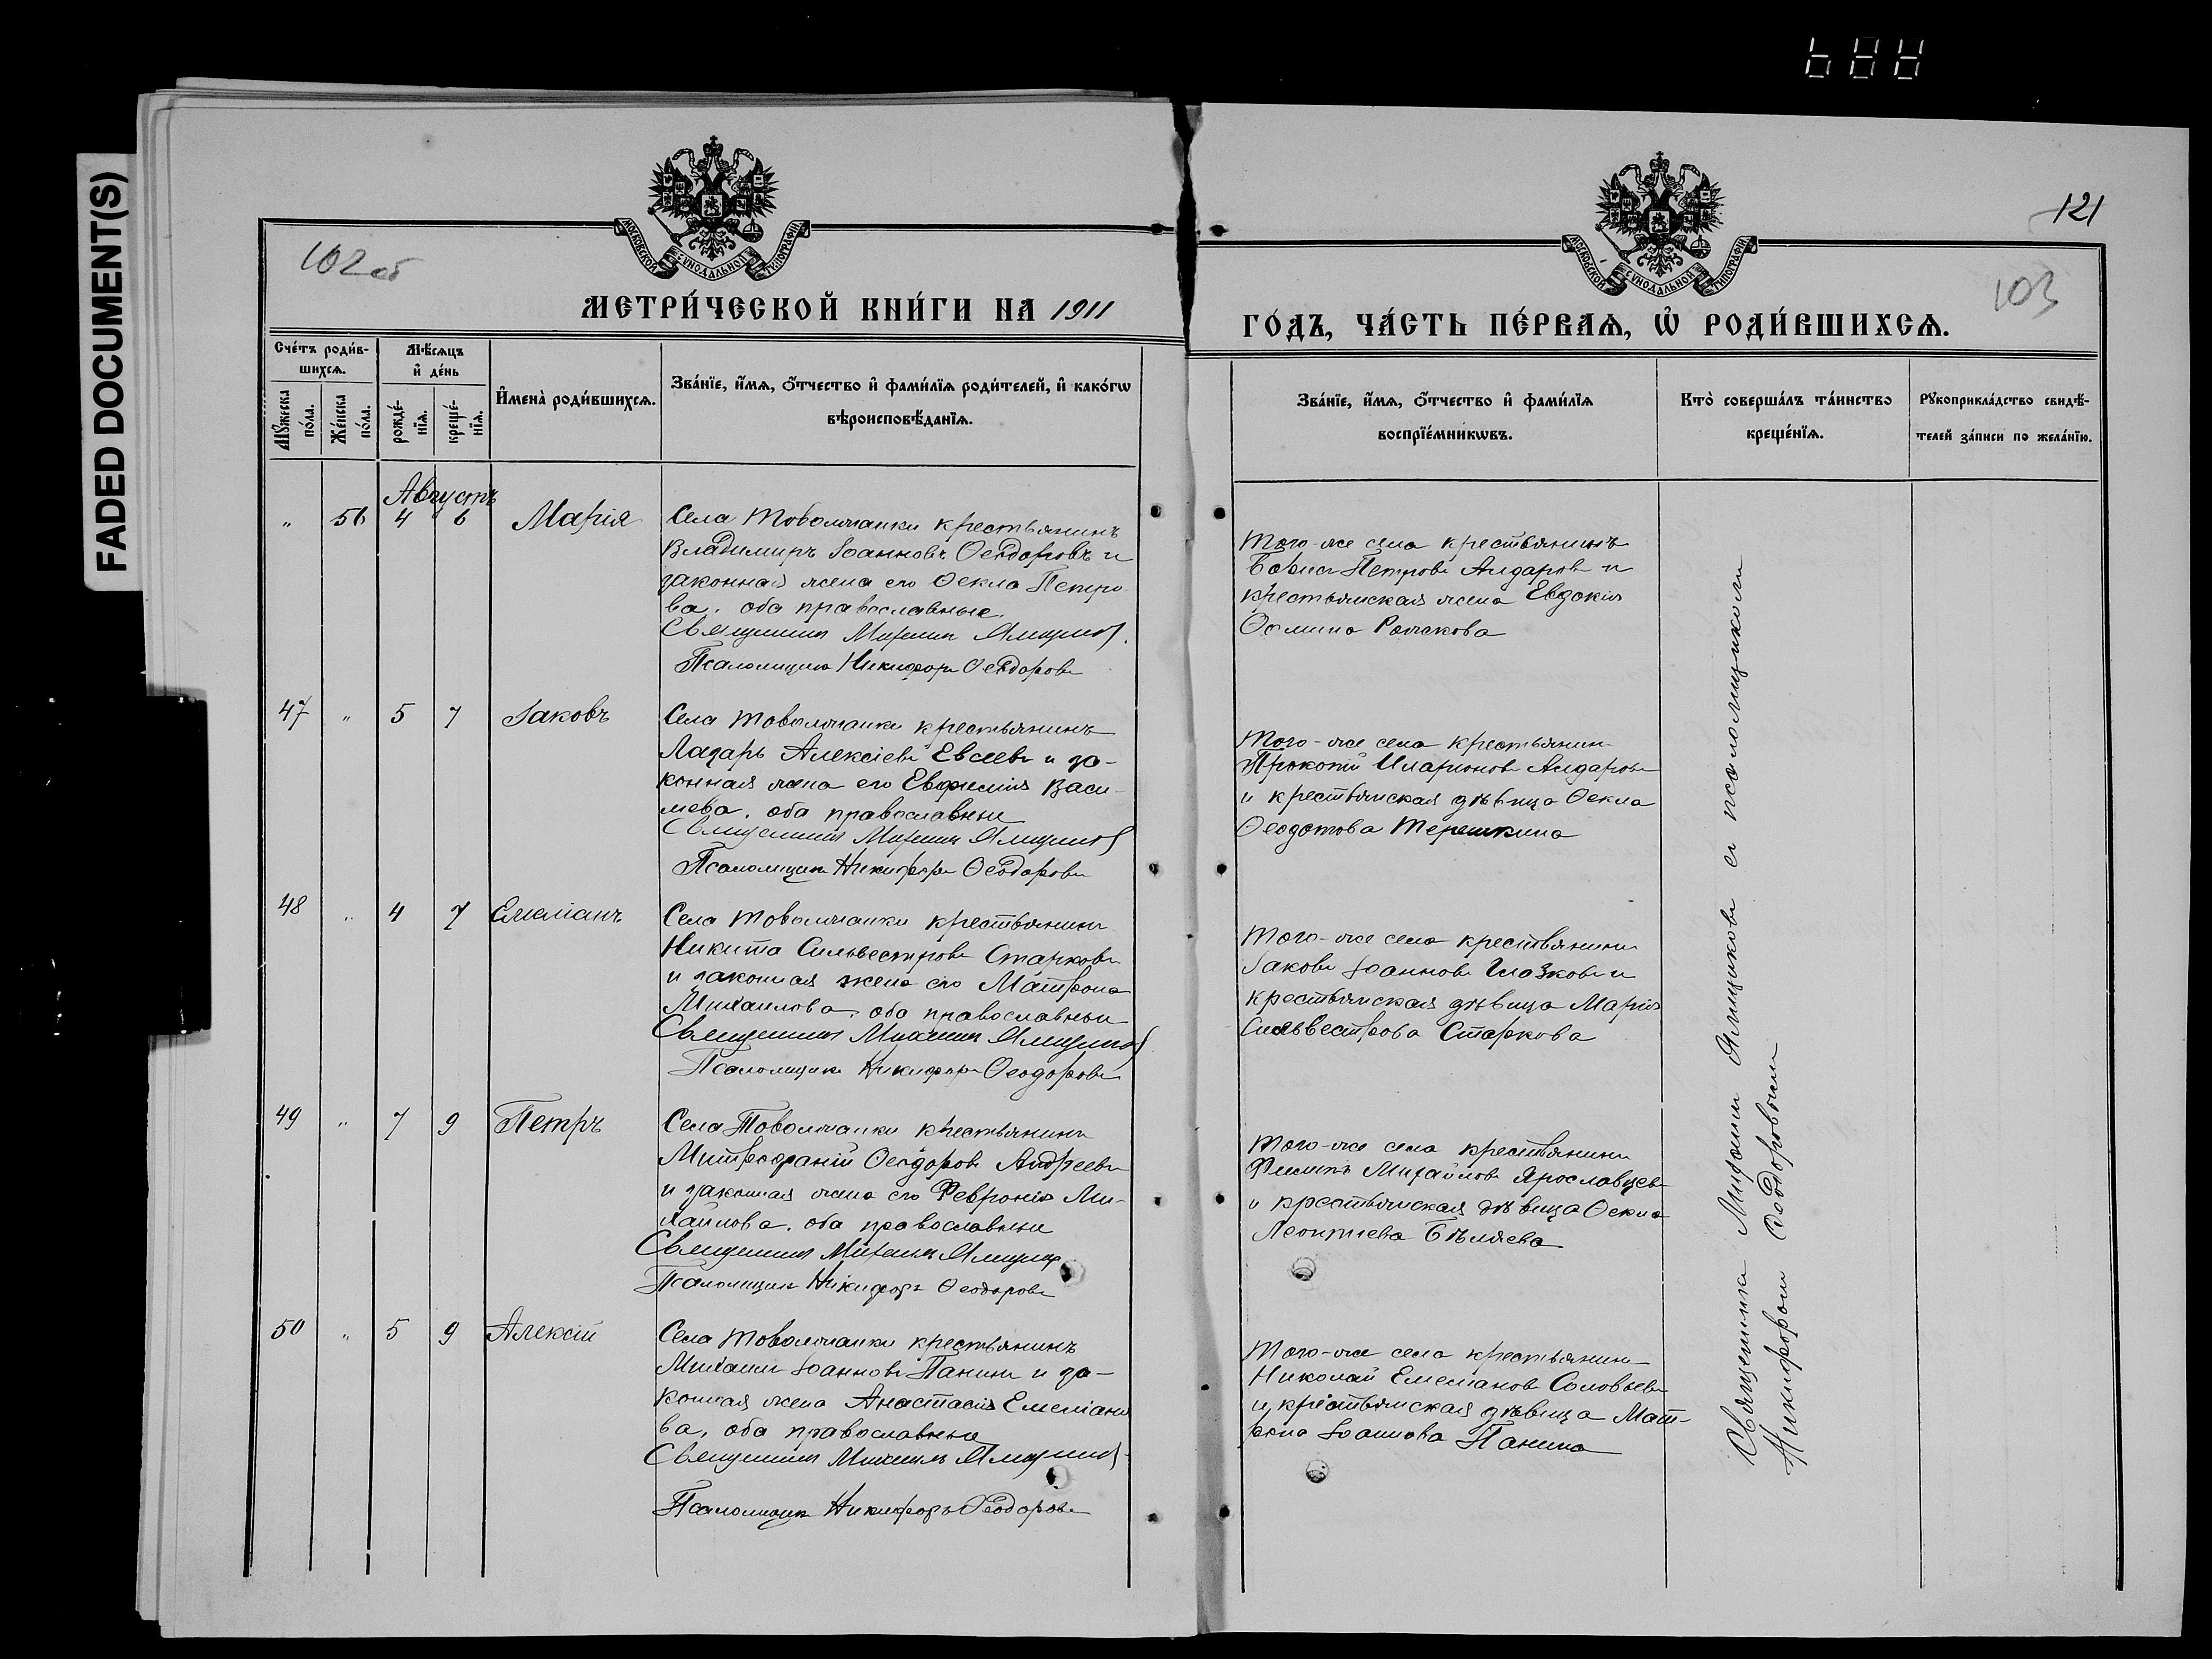 FADED DOCUMENT(S)
121
102 об
103
МОСКОВСКОЙ СѴНОДАЛЬНОЙ ТИПОГРАФІИ
МОСКОВСКОЙ СѴНОДАЛЬНОЙ ТИПОГРАФІИ
МЕТРИ́ЧЕСКОЙ КНИ́ГИ НА 1911
ГО́ДЪ, ЧА́СТЬ ПЕ́РВАѦ, Ѡ҆ РОДИ́ВШИХСѦ.
Сче́тъ роди́в-
шихсѧ.
Мꙋ́жеска
по́ла.
Же́нска
по́ла.
Мѣ́сѧцъ
и҆ де́нь
рожде́-
нїѧ.
креще́-
нїѧ.
И҆мена̀ роди́вшихсѧ.
Зва́нїе, и҆́мѧ, ѻ҆́тчество и҆ фами́лїѧ роди́телей, и҆ како́гѡ
вѣроисповѣ́данїѧ.
Зва́нїе, и҆́мѧ, ѻ҆́тчество и҆ фами́лїѧ
воспрїе́мникѡвъ.
Кто̀ соверша́лъ та́инство
креще́нїѧ.
Рꙋкоприкла́дство свидѣ́-
телей за́писи по жела́нїю.
Августъ
" 56 4 6 Марія
Села Товолжанки крестьянинъ
Владимиръ Іоанновъ Ѳеодоровъ и
законная жена его Ѳекла Петро
ва, оба православные.
Священникъ Михаилъ Ямщиковъ
Псаломщикъ Никифоръ Ѳеодоровъ
Того-же села крестьянинъ
Борисъ Петровъ Алдаровъ и
крестьянская жена Евдокія
Ѳомина
47 " 5 7 Іаковъ
Села Товолжанки крестьянинъ
Лазарь Алексіевъ Евсеевъ и за-
конная жена его Евфимія Васи-
лиева, оба православные
Священникъ Михаилъ Ямщиковъ
Псаломщикъ Никифоръ Ѳеодоровъ
Того-же села крестьянинъ
Прокопій Иларіоновъ Алдаровъ
и крестьянская дѣвица Ѳекла
Ѳеодотова Терешкина
48 " 4 7 Емеліанъ
Села Товолжанки крестьянинъ
Никита Сильвестровъ Старковъ
и законная жена его Матрона
Михаилова, оба православные
Священникъ Михаилъ Ямщиковъ
Псаломщикъ Никифоръ Ѳеодоровъ
Того-же села крестьянинъ
Іаковъ Іоанновъ Глазковъ и
крестьянская дѣвица Марія
Сильвестрова Старкова
49 " 7 9 Петръ
Села Товолжанки крестьянинъ
Митрофаній Ѳеодоровъ Андреевъ
и законная жена его Февронія Ми-
хаилова, оба православные
Священникъ Михаилъ Ямщиковъ
Псаломщикъ Никифоръ Ѳеодоровъ
Того-же села крестьянинъ
Филипъ Михайловъ Ярославцевъ
и крестьянская дѣвица Ѳекла
Леонтіева Бѣляева
50 " 5 9 Алексій
Села Товолжанки крестьянинъ
Михаилъ Іоанновъ Панинъ и за-
конная жена Анастасія Емеліано
ва, оба православные
Священникъ Михаилъ Ямщиковъ
Псаломщикъ Никифоръ Ѳеодоровъ
Того-же села крестьянинъ
Николай Емеліановъ Соловьевъ
и крестьянская дѣвица Мат-
рона Іоаннова Панина
Священникъ Михаилъ Ямщиковъ съ псаломщикомъ
Никифоромъ Ѳеодоровымъ